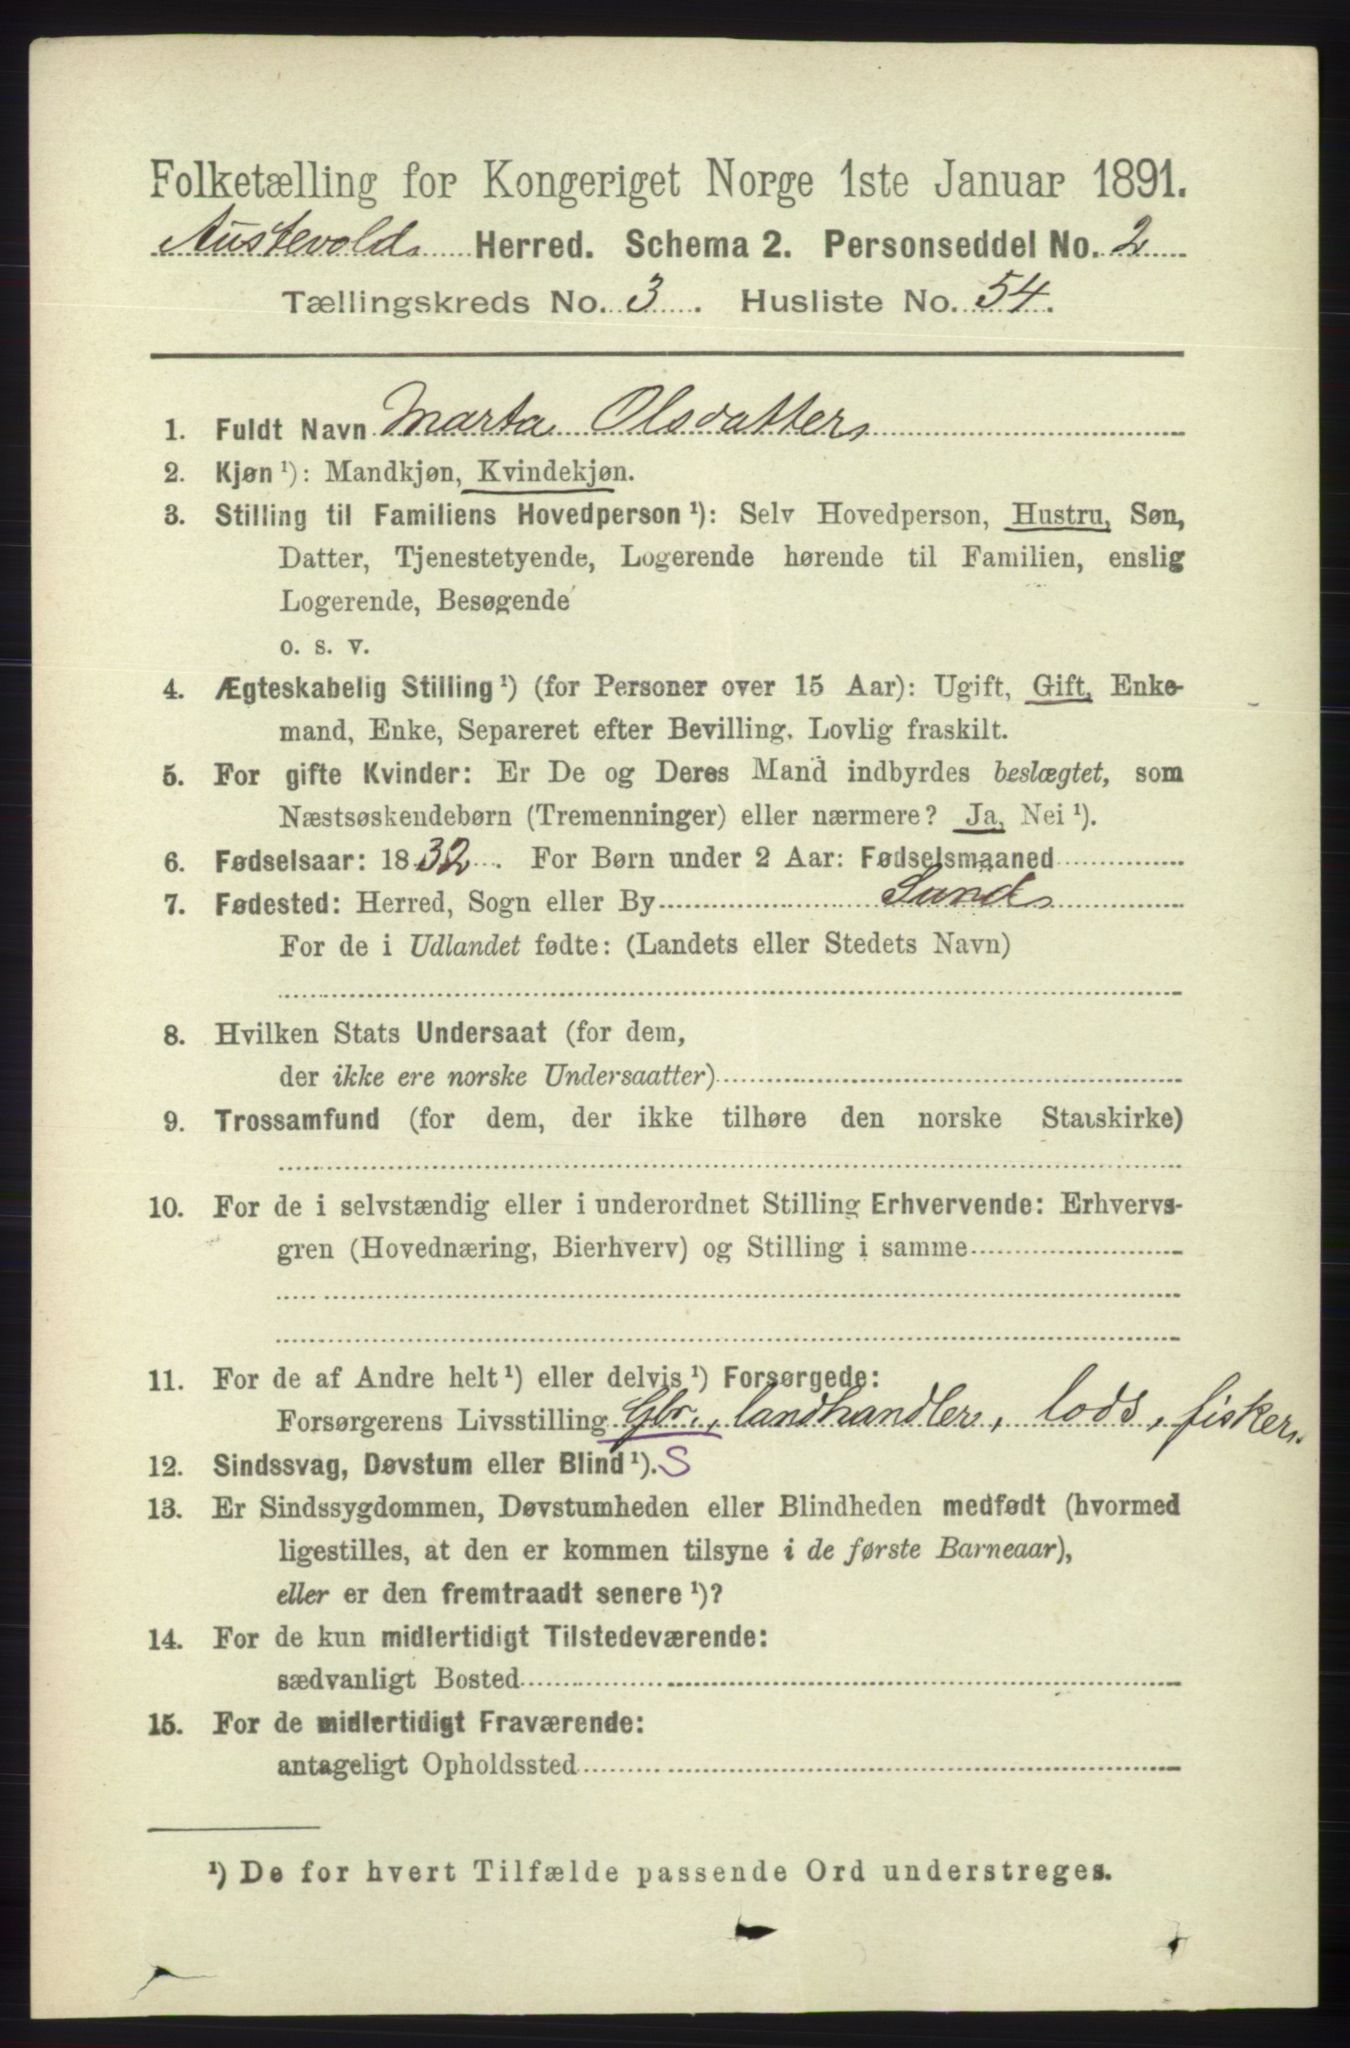 Folketælling for Kongeriget Norge 1ste Januar 1891.
Austevold Herred. Schema 2. Personseddel No. 2
Tællingskreds No. 3. Husliste No. 54.
1. Fuldt Navn Marta Olsdatter
2. Kjøn ¹): Mandkjøn, Kvindekjøn.
3. Stilling til Familiens Hovedperson ¹): Selv Hovedperson, Hustru, Søn,
Datter, Tjenestetyende, Logerende hørende til Familien, enslig
Logerende, Besøgende
o. s. v.
4. Ægteskabelig Stilling ¹) (for Personer over 15 Aar): Ugift, Gift, Enke-
mand, Enke, Separeret efter Bevilling. Lovlig fraskilt.
5. For gifte Kvinder: Er De og Deres Mand indbyrdes beslægtet, som
Næstsøskendebørn (Tremenninger) eller nærmere? Ja, Nei ¹).
6. Fødselsaar: 1832. For Børn under 2 Aar: Fødselsmaaned
7. Fødested: Herred, Sogn eller By Sund
For de i Udlandet fødte: (Landets eller Stedets Navn)
8. Hvilken Stats Undersaat (for dem,
der ikke ere norske Undersaatter)
9. Trossamfund (for dem, der ikke tilhøre den norske Statskirke)
10. For de i selvstændig eller i underordnet Stilling Erhvervende: Erhvervs-
gren (Hovednæring, Bierhverv) og Stilling i samme
11. For de af Andre helt ¹) eller delvis ¹) Forsørgede:
Forsørgerens Livsstilling Gbr., landhandler, lods, fisker.
12. Sindssvag, Døvstum eller Blind ¹). S
13. Er Sindssygdommen, Døvstumheden eller Blindheden medfødt (hvormed
ligestilles, at den er kommen tilsyne i de første Barneaar),
eller er den fremtraadt senere ¹)?
14. For de kun midlertidigt Tilstedeværende:
sædvanligt Bosted
15. For de midlertidigt Fraværende:
antageligt Opholdssted
¹) De for hvert Tilfælde passende Ord understreges.